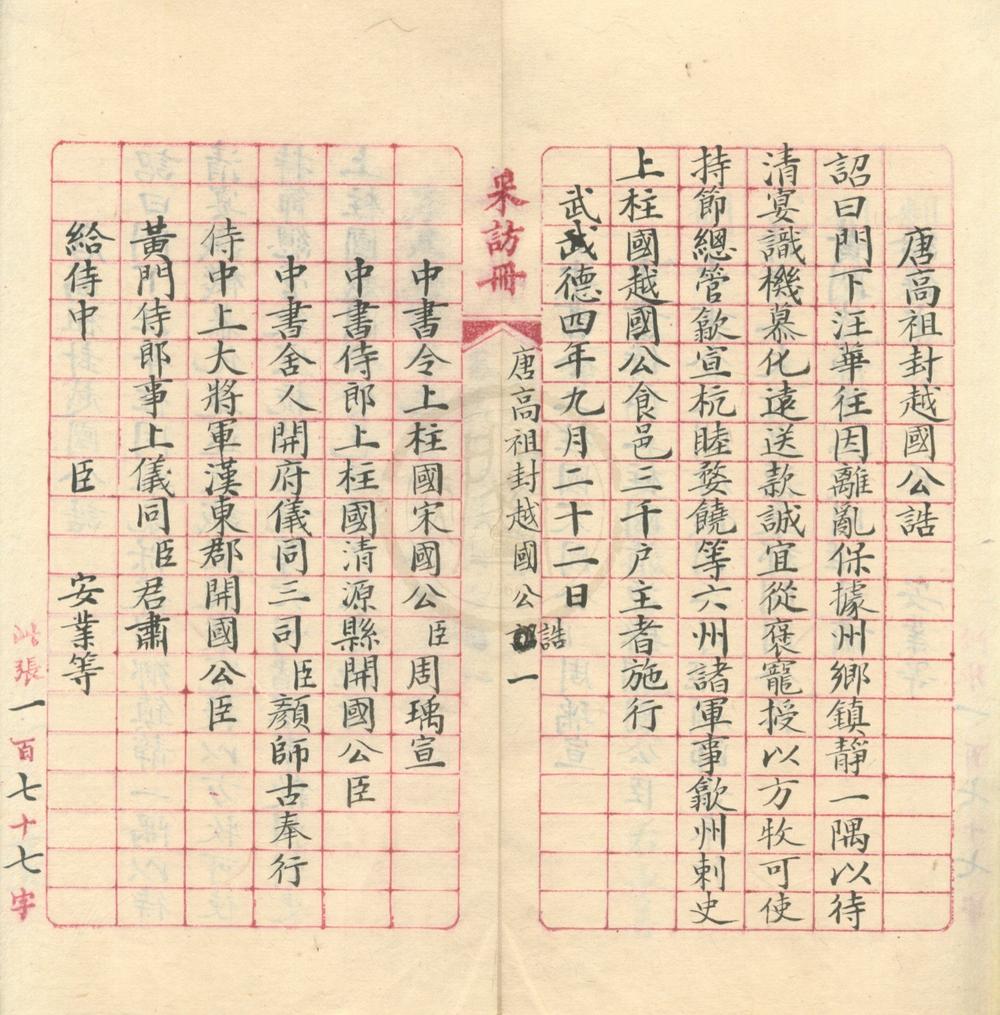 唐高祖封越國公誥
詔曰門下汪華往因離亂保據州鄉鎮靜一隅以待
清宴識機慕化遠送款誠宜從褒寵授以方牧可使
持節總管歙宣杭睦婺饒等六州諸軍事歙州刺史
上柱國越國公食邑三千户主者施行
武武德四年九月二十二日
采訪冊
唐高祖封越國公誥 一
中書令上柱國宋國公臣周瑀宣
中書侍郎上柱國清源縣開國公臣
中書舍人開府儀同三司臣顏師古奉行
侍中上大將軍漢東郡開國公臣
黃門侍郎事上儀同臣君肅
給侍中 臣 安業等
此張一百七十七字